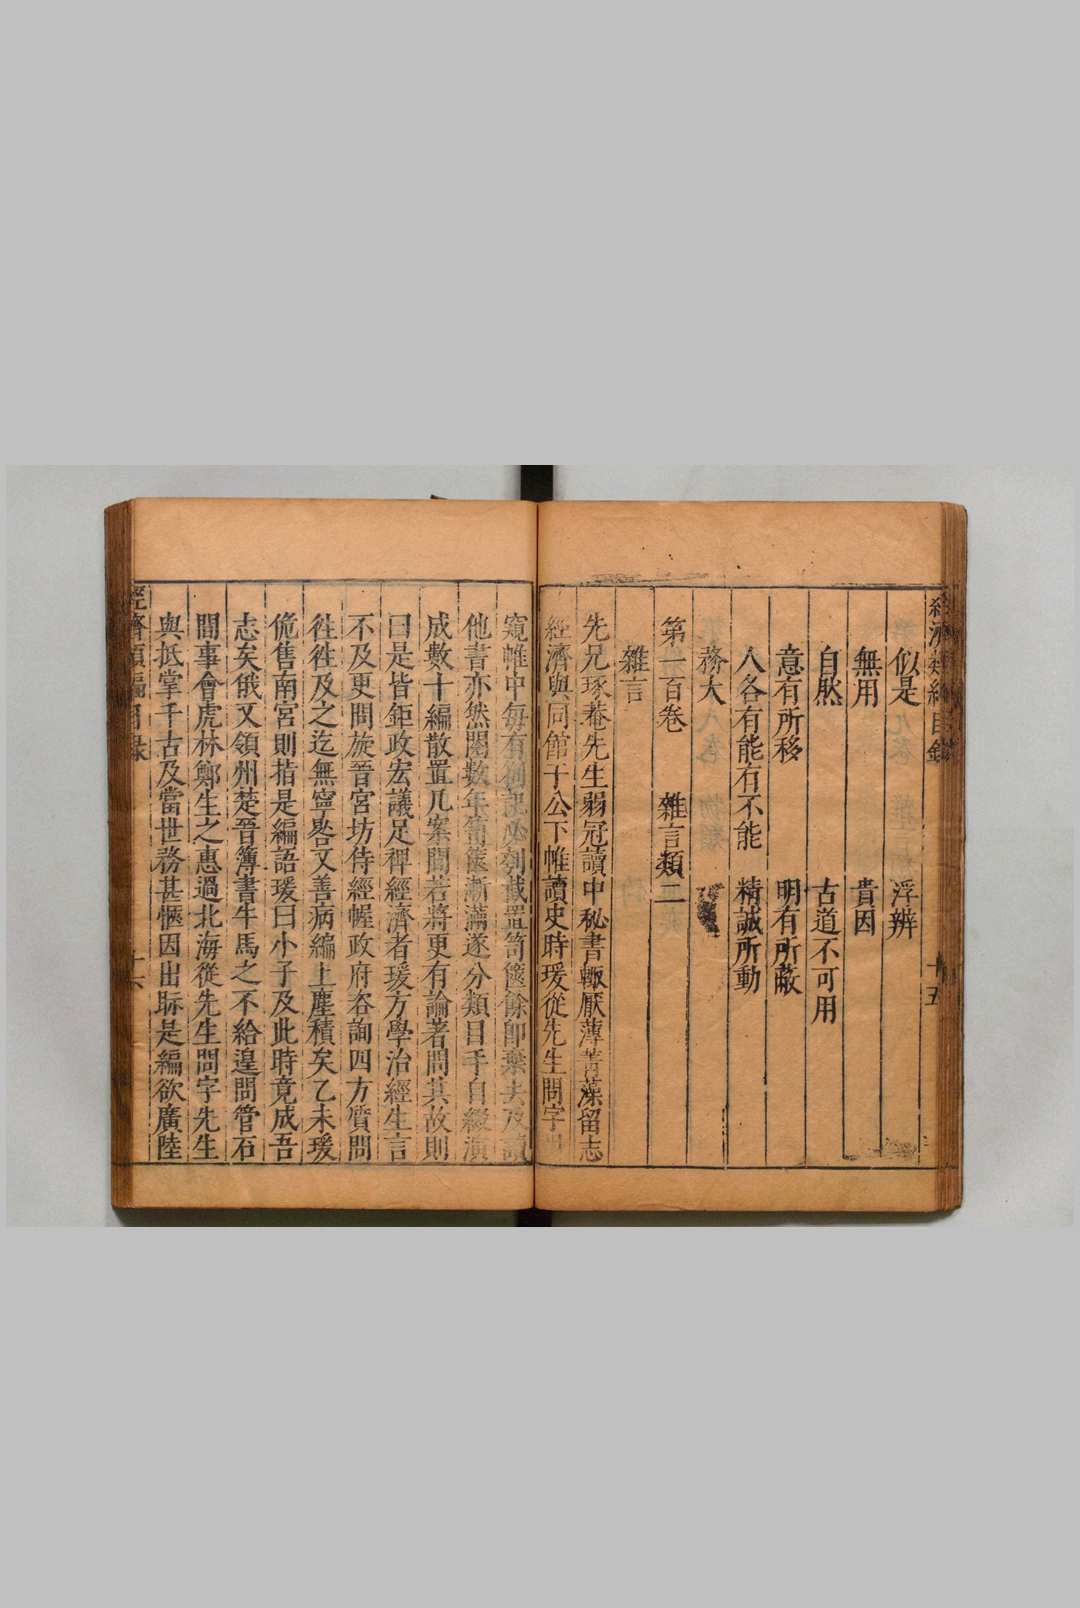 經濟類編目錄 十五
似是 浮辨
無用 貴因
自然 古道不可用
意有所移 明有所蔽
人各有能有不能 精誠所動
務大
第一百卷 雜言類二
雜言
先兄琢菴先生弱冠讀中秘書輙厭薄菁藻留志
經濟與同館于公下帷讀史時瑗從先生問字
窺帷中每有 必劄截置笥篋餘卽棄去及讀
他書亦然閱數年笥篋漸滿遂分類目手自綴演
成數十編散置几案間若將更有論著問其故則
曰是皆鉅政宏議足裨經濟者瑗方學治經生言
不及更問旋晉宮坊侍經幄政府咨詢四方質問
徃徃及之迄無寧晷又善病編上塵積矣乙未瑗
侥售南宮則指是編語瑗曰小子及此時竟成吾
志矣俄又領州楚晉簿書牛馬之不給遑問管石
間事會虎林鄭生之惠過北海從先生問字先生
與抵掌千古及當世務甚愜因出眎是編欲廣陸
經濟類編目錄 十六